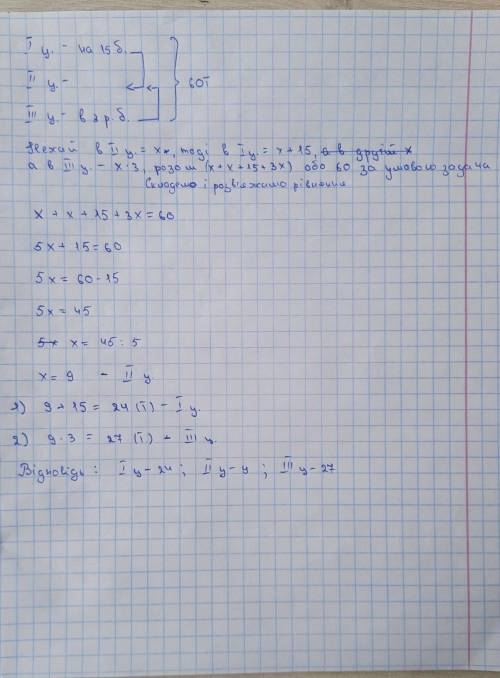 I ц. - на 15 б.
II ц. -
III ц. - в 3 р. б.
60т
Нехай в II ц. = x, тоді в I ц. = x + 15, а в другій x
а в III ц. - x · 3, розом (x + x + 15 + 3x) або 60 за умовою задача
Складемо і розв'яжимо рівняння
x + x + 15 + 3x = 60
5x + 15 = 60
5x = 60 - 15
5x = 45
5x x = 45 : 5
x = 9 - II ц
1) 9 + 15 = 24 (т) - I ц.
2) 9 · 3 = 27 (т) - III ц.
Відповідь: I ц - 24; II ц - 9; III ц - 27